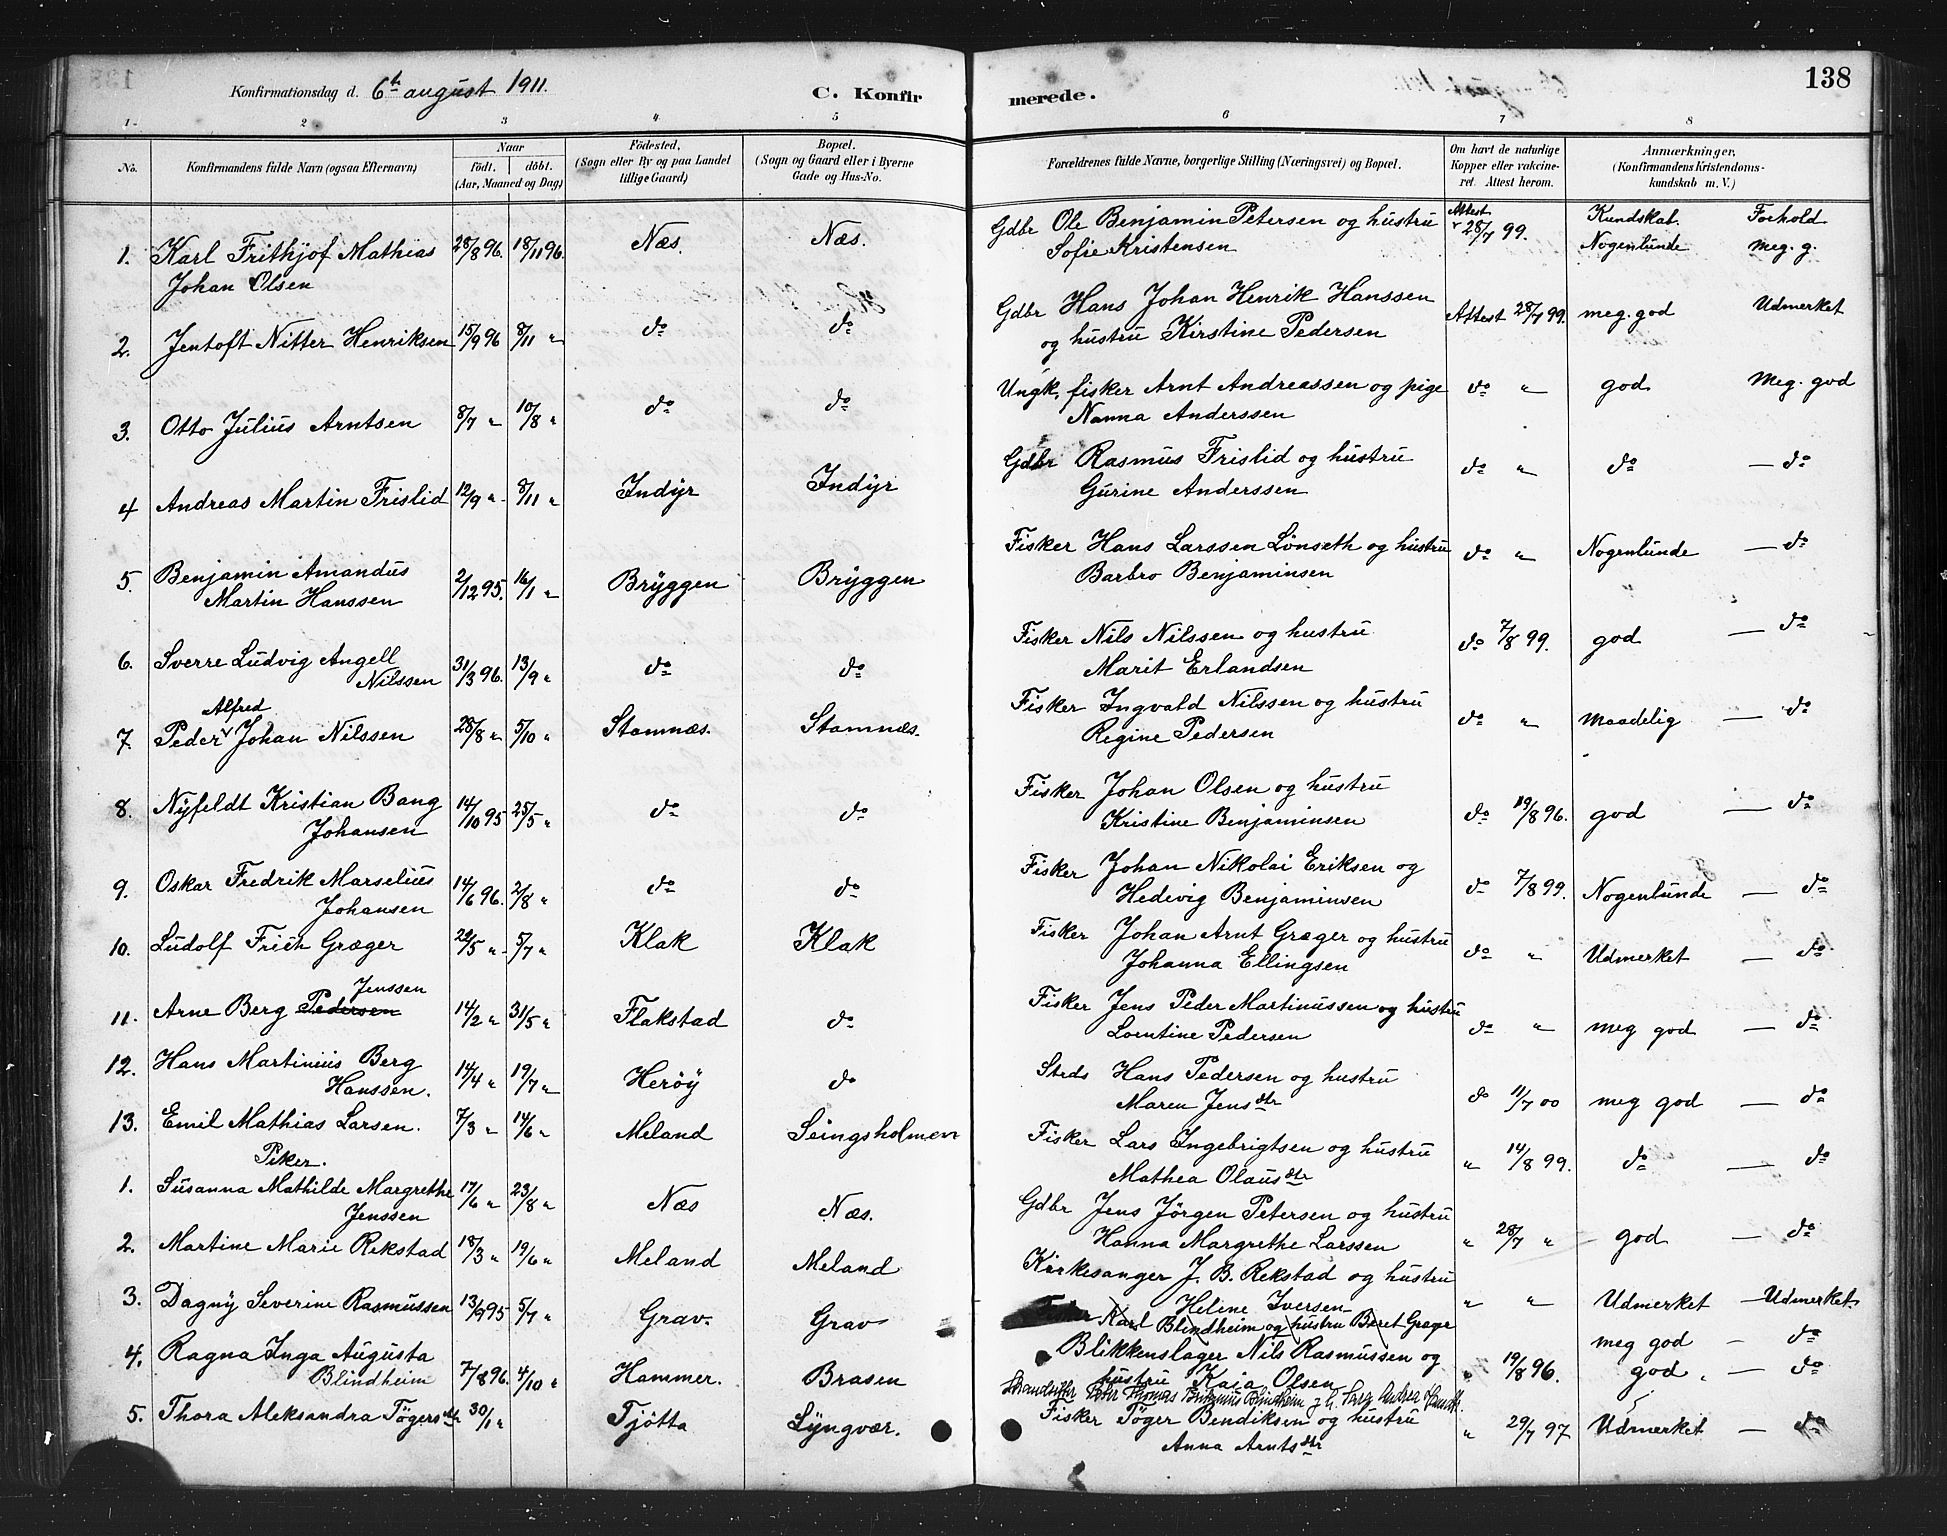 138
Konfirmationsdag d. 6te august 1911.
C. Konfirmerede.
1 2 3 4 5 6 7 8
No. Konfirmandens fulde Navn (ogsaa Efternavn) Naar født. døbt. (Aar, Maaned og Dag) Fødested, (Sogn eller By og paa Landet tillige Gaard) Bopæl. (Sogn og Gaard eller i Byerne Gade og Hus-No. Forældrenes fulde Navne, borgerlige Stilling (Næringsvei) og Bopæl. Om havt de naturlige Kopper eller vakcineret. Attest herom. Anmærkninger, (Konfirmandens Kristendomskundskab m. V.)
Kundskab. Forhold
1. Karl Frithjof Mathias 28/8 96. 18/11 96. Næs. Næs. Gdbr Ole Benjamin Petersen og hustru Attest 28/7 99. Nogenlunde meg. g.
Johan Olsen Sofie Kristensen
2. Jentoft Nitter Henriksen 15/9 96 8/11 " do do Gdbr Hans Johan Henrik Hanssen Attest 28/7 99. meg. god Udmerket
og hustru Kirstine Pedersen
3. Otto Julius Arntsen 8/7 " 10/8 " do do Ungk. fisker Arnt Andreassen og pige do " god Meg. god
Nanna Anderssen
4 Andreas Martin Frislid 12/9 " 8/11 " Indyr Indyr Gdbr Rasmus Frislid og hustru do " do — do
Gurine Anderssen
5. Benjamin Amandus 2/12 95. 16/1 " Bryggen Bryggen Fisker Hans Larssen Lønseth og hustru do " Nogenlunde — do
Martin Hanssen Barbro Benjaminsen
6. Sverre Ludvig Angell 31/3 96. 13/9 " do do Fisker Nils Nilssen og hustru do 7/8 99. god — do
Nilssen Marit Erlandsen
Alfred
7. Peder Johan Nilssen 28/8 " 5/10 " Stamnæs. Stamnæs. Fisker Ingvald Nilssen og hustru do " maadelig — do
Regine Pedersen
8. Nyfeldt Kristian Bang 14/10 95 25/5 " do do Fisker Johan Olsen og hustru do 19/8 96. god — do
Johansen Kristine Benjaminsen
9. Oskar Fredrik Marselius 14/6 96. 2/8 " do do Fisker Johan Nikolai Eriksen og do 7/8 99. Nogenlunde — do
Johansen Hedevig Benjaminsen
10. Ludolf Frich Græger 22/5 " 5/7 " Klak Klak Fisker Johan Arnt Græger og hustru do " Udmerket — do
Johanna Ellingsen
Jenssen
11. Arne Berg Pedersen 14/2 " 31/5 " Flakstad do Fisker Jens Peder Martinussen og hustru do " meg god — do
Lorntine Pedersen
12. Hans Martinius Berg 14/4 " 19/7 " Herøy do Strds Hans Pedersen og hustru do 11/7 00 meg god — do
Hanssen. Maren Jensdtr
13. Emil Mathias Larsen. 7/3 " 14/6 " Meland Seingsholmen Fisker Lars Ingebrigtsen og hustru " 14/8 99. do — do
Mathea Olausdtr
Piker.
1. Susanna Mathilde Margrethe 17/6 " 23/8 " Næs Næs. Gdbr Jens Jørgen Petersen og hustru " 28/7 " god — do
Jenssen Hanna Margrethe Larssen
2. Martine Marie Rekstad 18/3 " 19/6 " Meland Meland Kirkesanger J. B. Rekstad og hustru " " Udmerket — Udmerket
Heline Iversen
3. Dagny Severine Rasmussen 13/9 95 5/7 " Grav. Grav Karl Blindheim og hustru Beret Græger
meg god — do
Blikkenslager Nils Rasmussen og " 19/8 96. god — do
hustru Kaja Olsen
4. Ragna Inga Augusta 7/8 96. 4/10 " Hammer. Brasen
Blindheim
5. Thora Aleksandra Tøgersdtr 30/1 " Tjøtta Lyngvær. Fisker Tøger Bendiksen og hustru " 29/7 97 Udmerket — do
Anna Arntsdtr